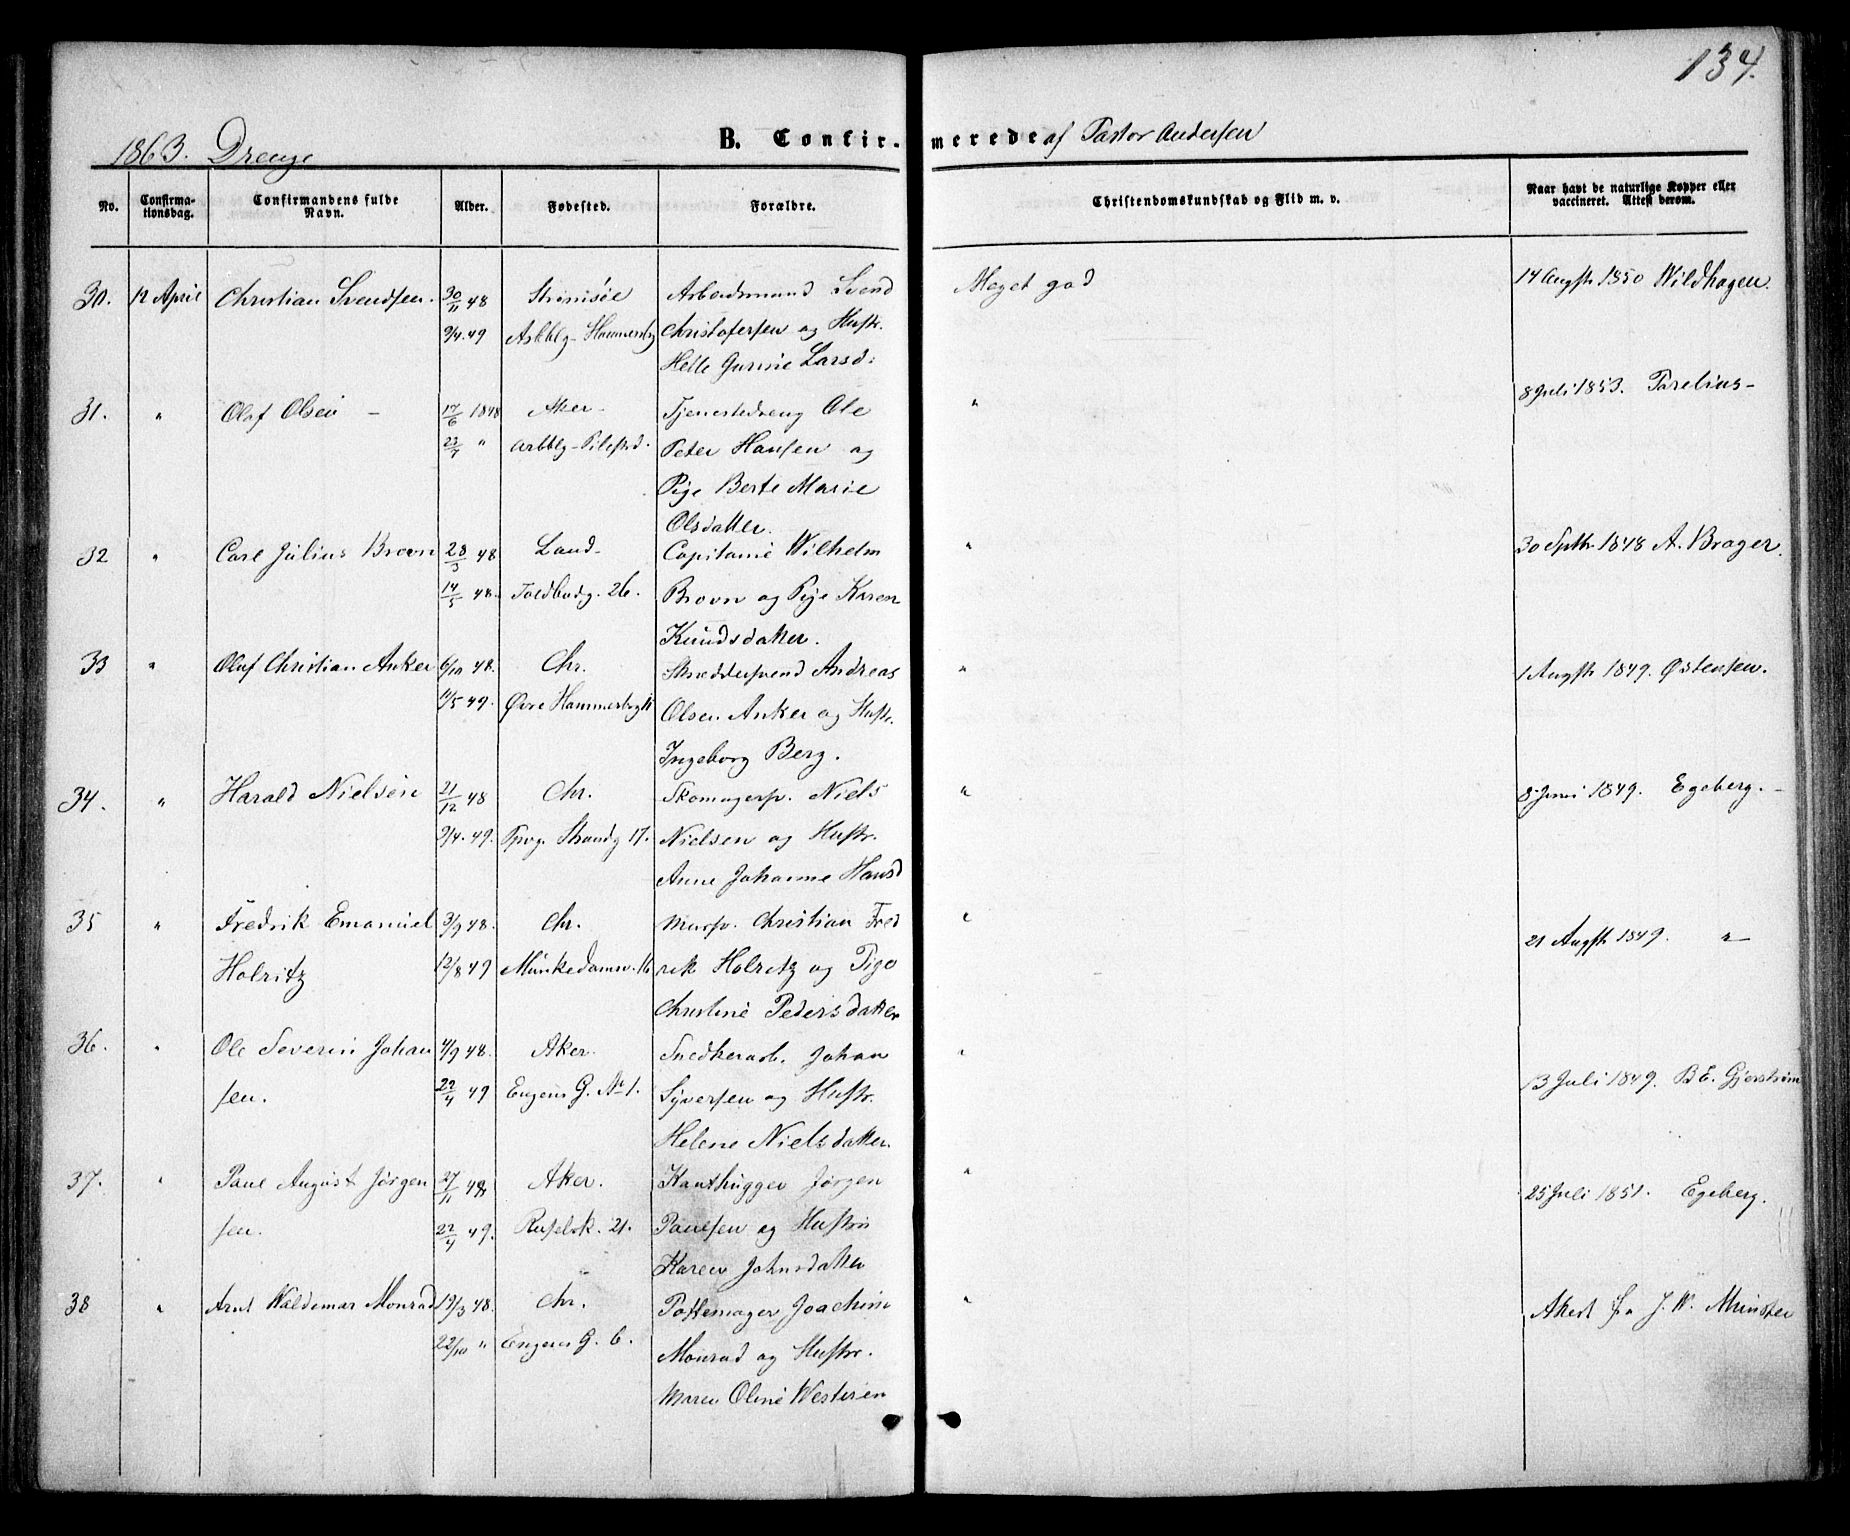 134.
1863. Drenge
B. Confirmerede af Pastor Andersen
No.
Confirmationsdag.
Confirmandens fulde Navn.
Alder.
Fødested.
Forældre.
Christendomskundskab og Flid m. v.
Naar havt de naturlige Kopper eller vaccineret. Attest derom.
30. 12 April Christian Svendsen. 30/11 48 Strømsøe Arbeidsmand Svend Meget god 14 Augst 1850 Wildhagen.
9/4. 49 Hammersbg Christofersen og Hustr.
Helle Gurine Larsd:
31. " Olaf Olsen - 17/6 1848 Aker - Tjenestedreng Ole " 8 Juli 1853. Parelius -
" Arbbg - Pilestrd. Peter Hansen og
Pige Berte Marie
Olsdatter.
32 " Carl Julius Brovn 48 Land - Capitaine Wilhelm " 30 Septbr 1848 A. Brager.
14/5 48. Toldbodg. 26. Brovn og Pige Karen
Knudsdatter.
33 " Oluf Christian Anker 6/10 48. Chr. Skræddersvend Andreas " 1 Augst 1849. Østensen.
49. Øvre Hammersbg Olsen Anker og Hustr.
Ingeborg Berg.
34. " Harald Nielsen 21/12 48 Chr. Skomagersv. Niels " 8 Juni 1849. Egeberg. -
9/4. 49. Strandg 17. Nielsen og Hustr.
Anne Johanne Hansd
35 " Fredrik Emanuel 3/9 48. Chr. Mursv. Christian Fred " 21 Augst 1849. "
Holritz 12/8 49 Munkedamsv. 16 rik Holritz og Pige
Christine Pedersdatter
36. " Ole Severin Johan 4/9 48. Aker. Snedkerarb. Johan " 13 Juli 1849. B E. Gjerstrøm
sen. 22/4 49 Engens G. No 1. Syversen og Hustr.
Helene Nielsdatter.
37. " Paul August Jørgen 27/11 48 Aker. Kanthugger Jørgen " 25 Juli 1851. Egeberg.
sen. 22/4 49. Ruselsk. 21. Paulsen og Hustru
Karen Johnsdatter
38 " Arnt Waldemar Monrad 19/3 48. Chr. Pottemager Joachim " Attest fra J. W. Munster
22/10 " Engens G. 6. Monrad og Hustr.
Maren Oline Westersen